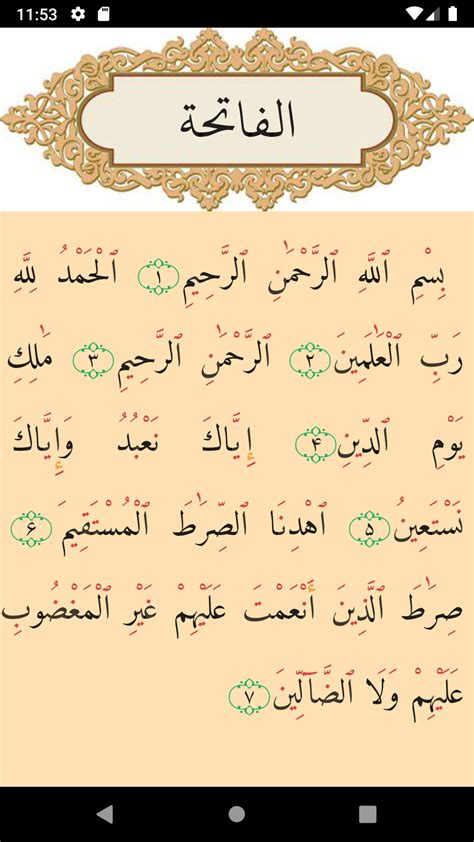 11:53
الفاتحة
بِسْمِ ٱللَّهِ ٱلرَّحْمَٰنِ ٱلرَّحِيمِ ١ ٱلْحَمْدُ لِلَّهِ
رَبِّ ٱلْعَٰلَمِينَ ٢ ٱلرَّحْمَٰنِ ٱلرَّحِيمِ ٣ مَٰلِكِ
يَوْمِ ٱلدِّينِ ۴ إِيَّاكَ نَعْبُدُ وَإِيَّاكَ
نَسْتَعِينُ ۵ ٱهْدِنَا ٱلصِّرَٰطَ ٱلْمُسْتَقِيمَ ۶
صِرَٰطَ ٱلَّذِينَ أَنْعَمْتَ عَلَيْهِمْ غَيْرِ ٱلْمَغْضُوبِ
عَلَيْهِمْ وَلَا ٱلضَّآلِّينَ ٧